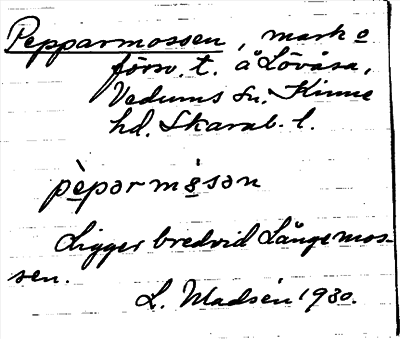 Pepparmossen, mark o
försv. t. å Lövåsa,
Vedums sn. Kinne
hd. Skarab. l.
pèpərmȯsən
Ligger bredvid Långemos-
sen.
L. Madsén 1930.